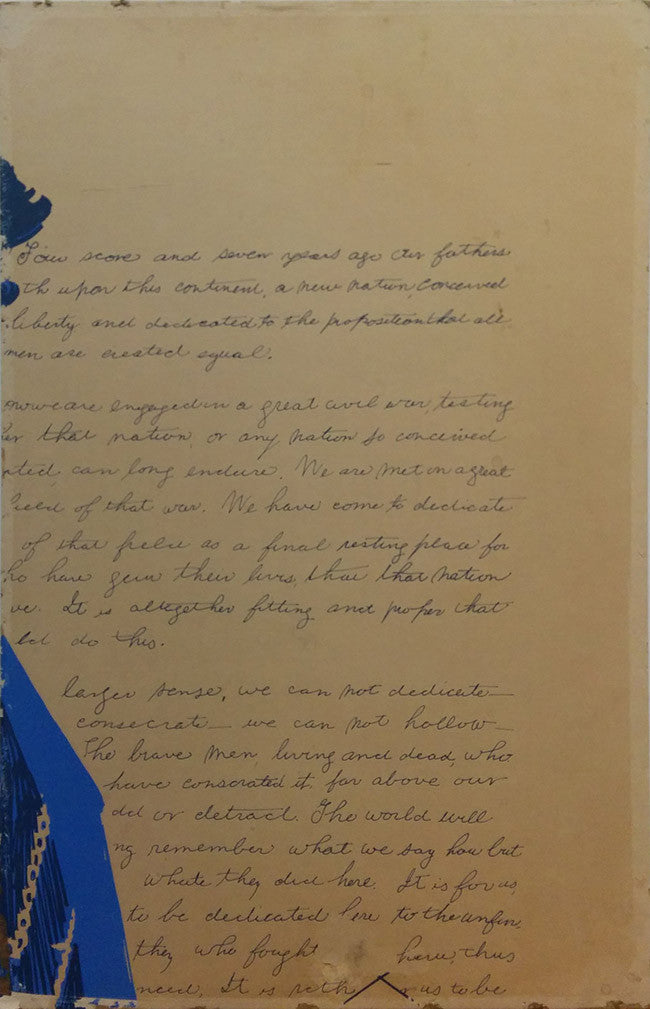 Four score and seven years ago our fathers
th upon this continent, a new nation, conceived
liberty and dedicated to the proposition that all
men are created equal.
ow we are engaged in a great civil war, testing
er that nation, or any nation so conceived
ated, can long endure. We are met on a great
field of that war. We have come to dedicate
of that field as a final resting place for
ho have gave their lives, that that nation
ve. It is altogether fitting and proper that
ld do this.
larger sense, we can not dedicate—
consecrate— we can not hollow—
The brave men, living and dead, who
have conscrated it, far above our
dd or detract. The world will
ng remember what we say hou but
whate they did here. It is for us,
to be dedicated here to the unfin
they who fought here, thus
nced. It is rath r us to be